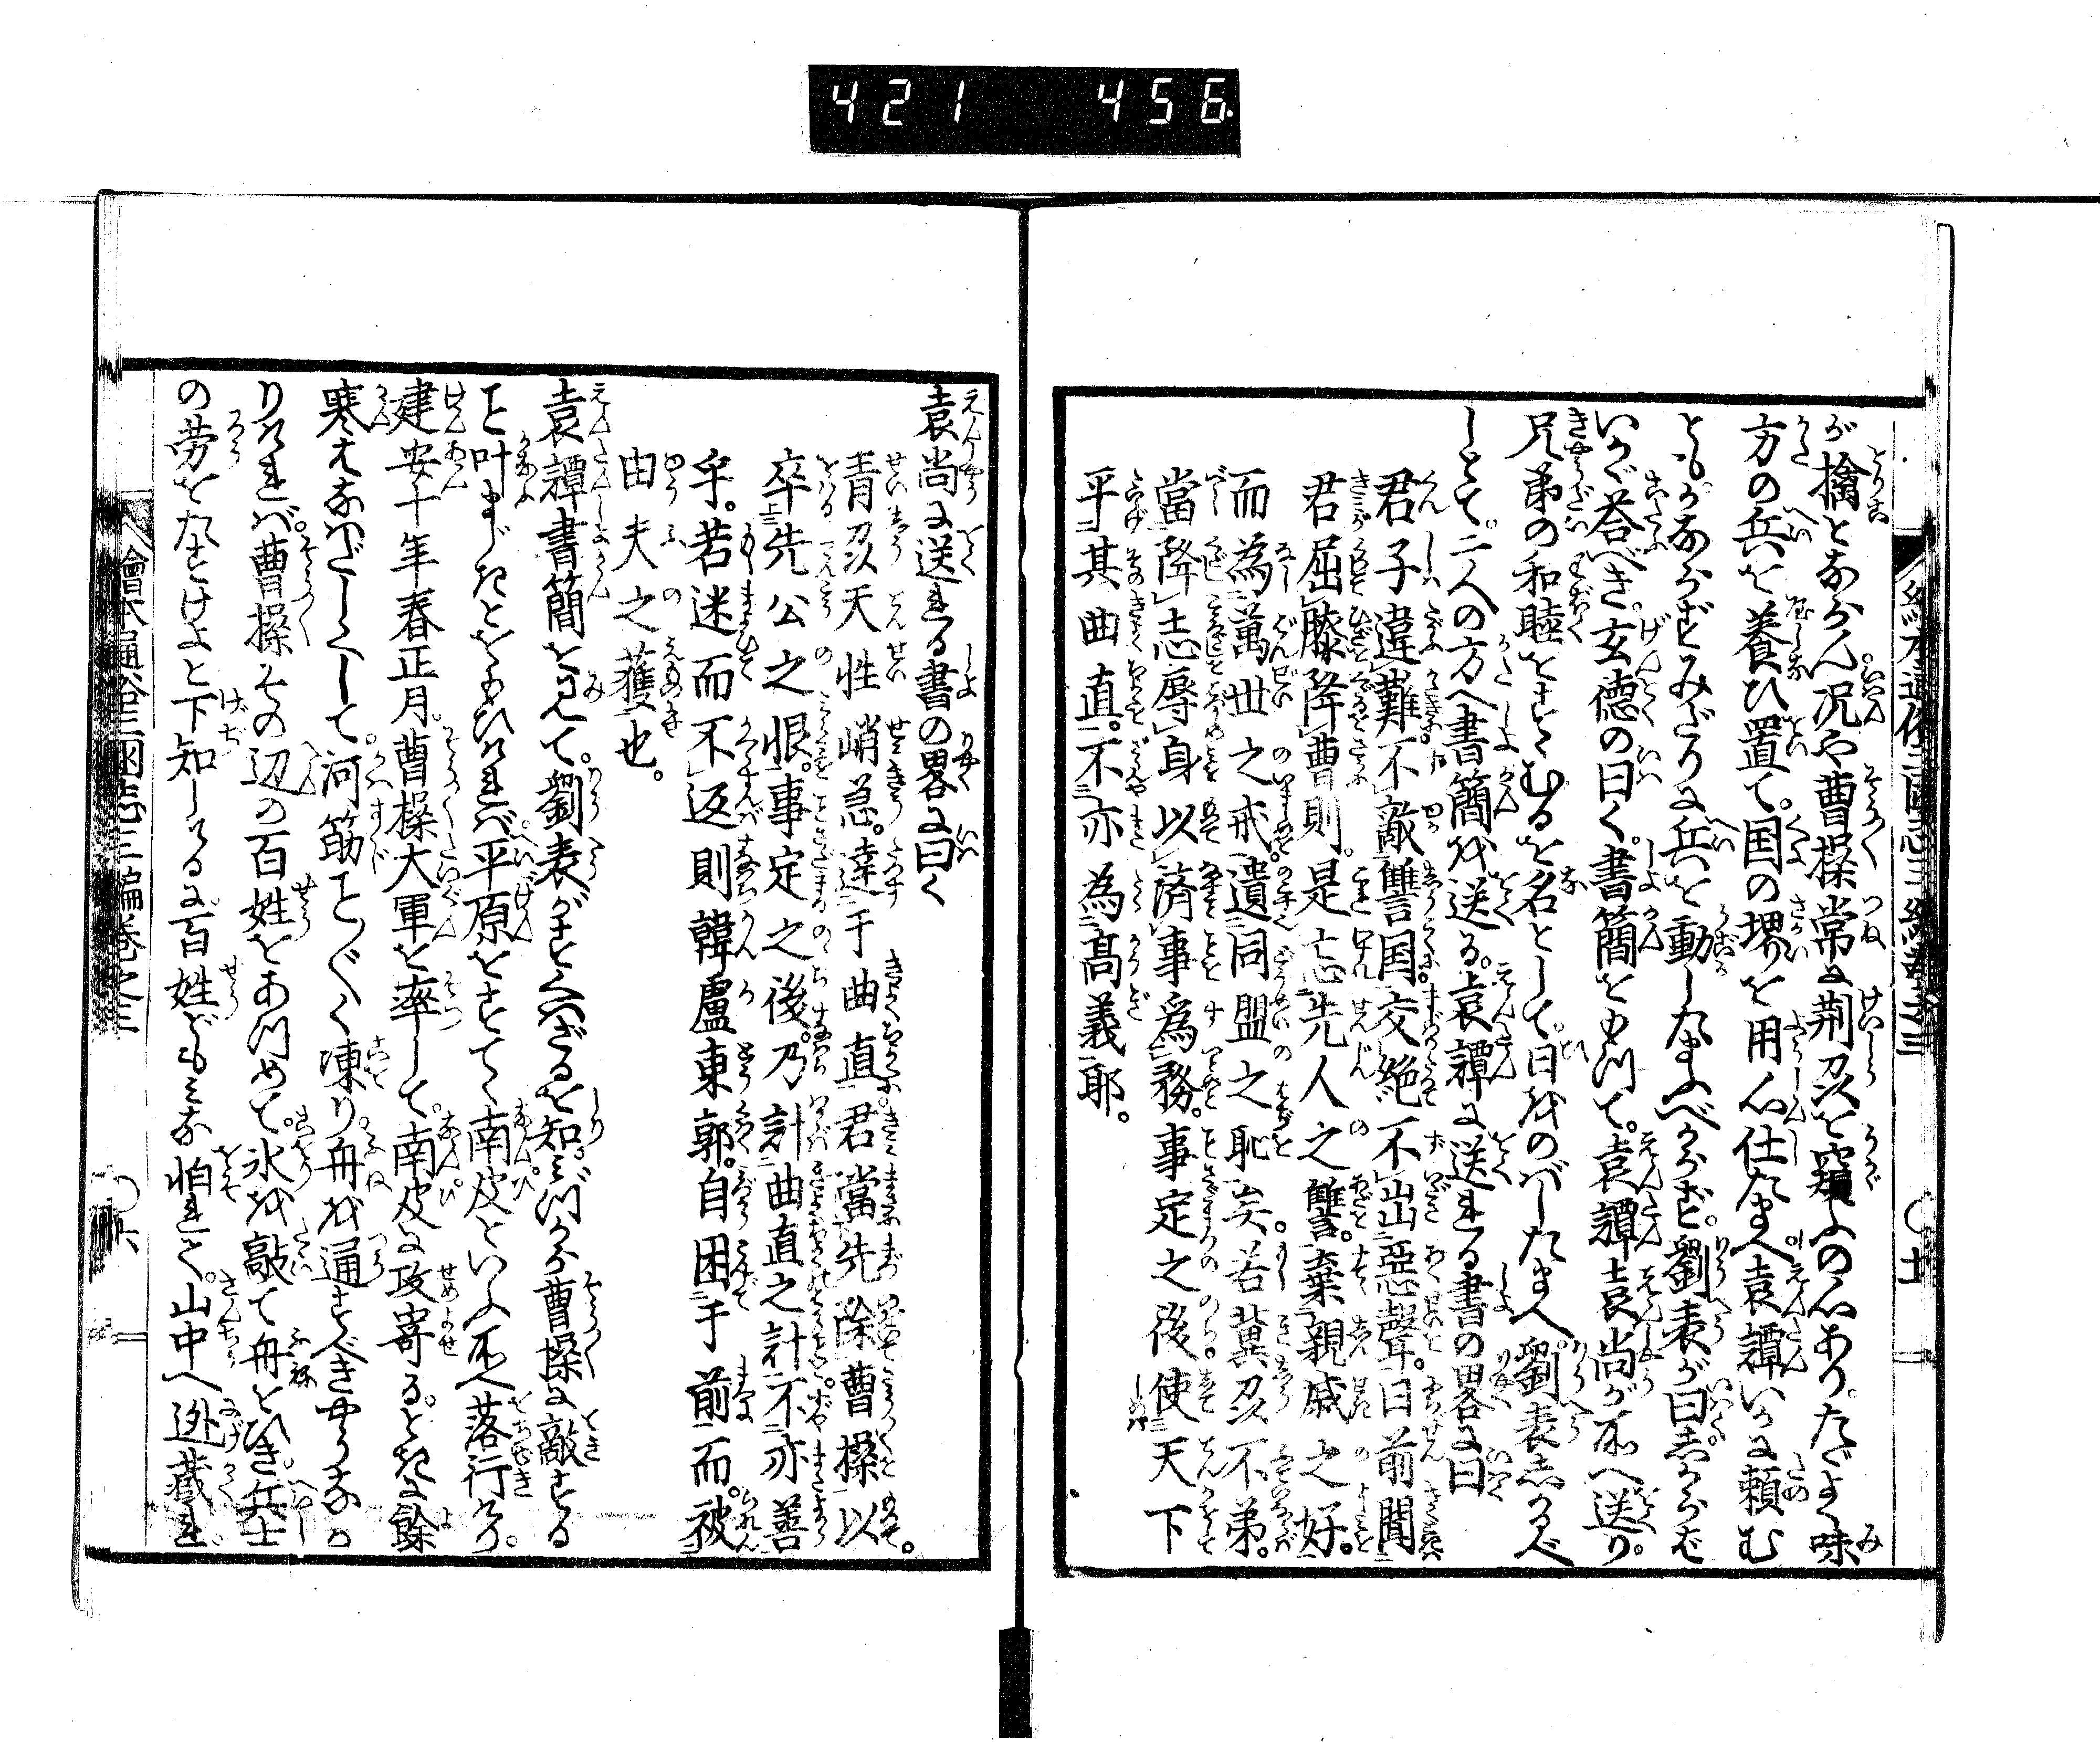 421 456
が擒とならん。况や曹操常に荆州を窺ふの心あり。たゞよく味
方の兵を養ひ置て。国の堺を用心仕たまへ袁譚いかに頼む
ともかならずみだりに兵を動したまふべからず。劉表が曰しからば
いかゞ荅べき。玄徳の曰く。書簡をもつて。袁譚袁尚が所へ送り。
兄弟の和睦をすゝむるを名として。日をのばしたまへ。劉表しかるべ
しとて。二人の方へ書簡を送る。袁譚に送れる書の畧に曰
君子違難不敵讐国。交絶不出惡聲。日前聞
君屈膝降曹則。是忘先人之讐。棄親戚之好。
而為萬世之戒。遺同盟之恥矣。若冀州不弟。
當降志辱身以済事爲務。事定之後使天下
平其曲直。不亦為髙義耶。
袁尚に送れる書の畧に曰く
青州天性峭急。逹于曲直。君當先除曹操以。
卒先公之恨。事定之後。乃計曲直之計不亦善
乎。若迷而不返則韓盧東郭。自困于前而。被
由夫之獲也。
袁譚書簡をみて。劉表がすくはざるを知。みづから曹操に敵する
こと叶まじきとをもひければ。平原をすてゝ南皮といふ所へ落行けり。
建安十年春正月。曹操大軍を率して。南皮に攻寄る。ときに餘
寒はなはだしくして。河筋ことごとく凍り。舟を通すべきやうなか
りければ。曹操その辺の百姓をあつめて。氷を敲て舟をひき。兵士
の労をたすけよと下知しけるに。百姓どもみな怕れて。山中へ迯蔵れ
繪本通俗三國志三編卷之三